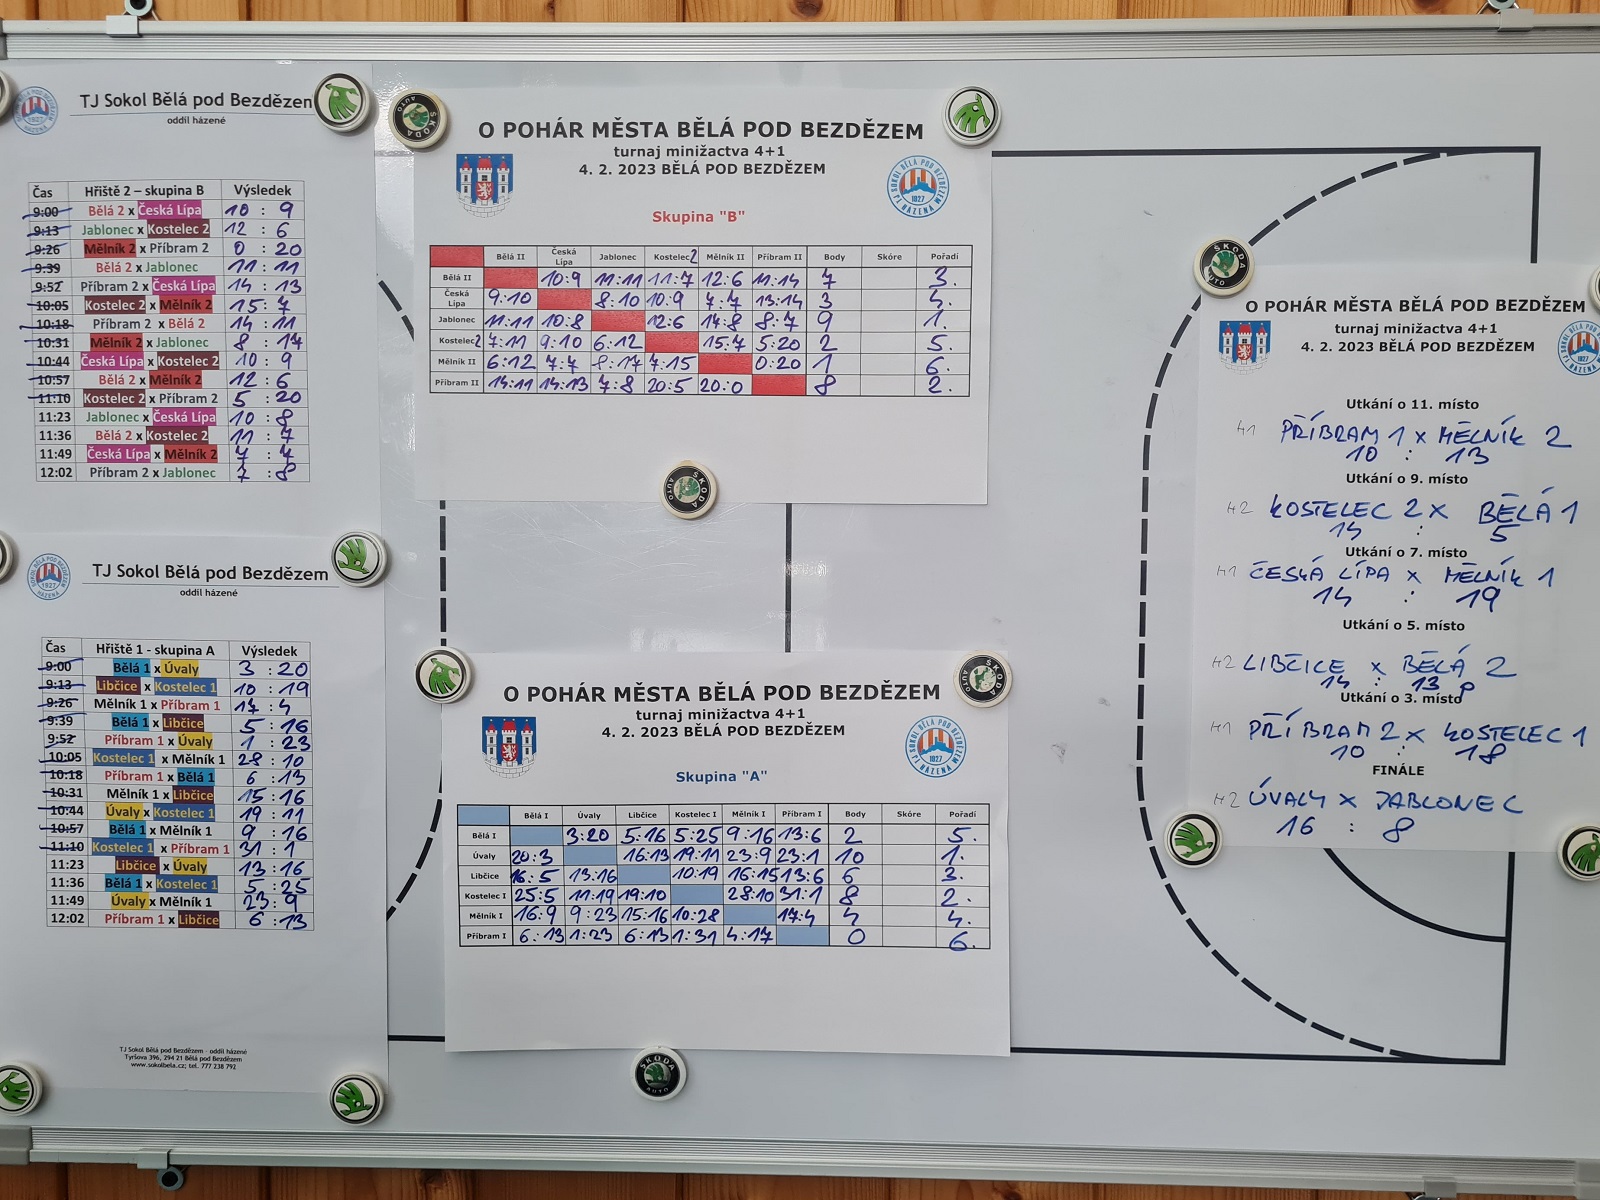 TJ Sokol Bělá pod Bezdězem
oddíl házené
Čas Hřiště 2 – skupina B Výsledek
9:00 Bělá 2 x Česká Lípa 10 : 9
9:13 Jablonec x Kostelec 2 12 : 6
9:26 Mělník 2 x Příbram 2 0 : 20
9:39 Bělá 2 x Jablonec 11 : 11
9:52 Příbram 2 x Česká Lípa 14 : 13
10:05 Kostelec 2 x Mělník 2 15 : 7
10:18 Příbram 2 x Bělá 2 14 : 11
10:31 Mělník 2 x Jablonec 8 : 14
10:44 Česká Lípa x Kostelec 2 10 : 9
10:57 Bělá 2 x Mělník 2 12 : 6
11:10 Kostelec 2 x Příbram 2 5 : 20
11:23 Jablonec x Česká Lípa 10 : 8
11:36 Bělá 2 x Kostelec 2 11 : 7
11:49 Česká Lípa x Mělník 2 7 : 7
12:02 Příbram 2 x Jablonec 7 : 8
TJ Sokol Bělá pod Bezdězem
oddíl házené
Čas Hřiště 1 - skupina A Výsledek
9:00 Bělá 1 x Úvaly 3 : 20
9:13 Libčice x Kostelec 1 10 : 19
9:26 Mělník 1 x Příbram 1 17 : 4
9:39 Bělá 1 x Libčice 5 : 16
9:52 Příbram 1 x Úvaly 1 : 23
10:05 Kostelec 1 x Mělník 1 28 : 10
10:18 Příbram 1 x Bělá 1 6 : 13
10:31 Mělník 1 x Libčice 15 : 16
10:44 Úvaly x Kostelec 1 19 : 11
10:57 Bělá 1 x Mělník 1 9 : 16
11:10 Kostelec 1 x Příbram 1 31 : 1
11:23 Libčice x Úvaly 13 : 16
11:36 Bělá 1 x Kostelec 1 5 : 25
11:49 Úvaly x Mělník 1 23 : 9
12:02 Příbram 1 x Libčice 6 : 13
TJ Sokol Bělá pod Bezdězem - oddíl házené
Tyršova 396, 294 21 Bělá pod Bezdězem
www.sokolbela.cz; tel. 777 238 792
O POHÁR MĚSTA BĚLÁ POD BEZDĚZEM
turnaj minižactva 4+1
4. 2. 2023 BĚLÁ POD BEZDĚZEM
Skupina "B"
Bělá II Česká Lípa Jablonec Kostelec 2 Mělník II Příbram II Body Skóre Pořadí
Bělá II 10:9 11:11 11:7 12:6 11:14 7 3.
Česká Lípa 9:10 8:10 10:9 7:7 13:14 3 4.
Jablonec 11:11 10:8 12:6 14:8 8:7 9 1.
Kostelec 2 7:11 9:10 6:12 15:7 5:20 2 5.
Mělník II 6:12 7:7 8:17 7:15 0:20 1 6.
Příbram II 14:11 14:13 7:8 20:5 20:0 8 2.
O POHÁR MĚSTA BĚLÁ POD BEZDĚZEM
turnaj minižactva 4+1
4. 2. 2023 BĚLÁ POD BEZDĚZEM
Skupina "A"
Bělá I Úvaly Libčice Kostelec I Mělník I Příbram I Body Skóre Pořadí
Bělá I 3:20 5:16 5:25 9:16 13:6 2 5.
Úvaly 20:3 16:13 19:11 23:9 23:1 10 1.
Libčice 16:5 13:16 10:19 16:15 13:6 6 3.
Kostelec I 25:5 11:19 19:10 28:10 31:1 8 2.
Mělník I 16:9 9:23 15:16 10:28 17:4 4 4.
Příbram I 6:13 1:23 6:13 1:31 4:17 0 6.
O POHÁR MĚSTA BĚLÁ POD BEZDĚZEM
turnaj minižactva 4+1
4. 2. 2023 BĚLÁ POD BEZDĚZEM
Utkání o 11. místo
H1 PŘÍBRAM 1 x MĚLNÍK 2
10 : 13
Utkání o 9. místo
H2 KOSTELEC 2 x BĚLÁ 1
14 : 5
Utkání o 7. místo
H1 ČESKÁ LÍPA x MĚLNÍK 1
14 : 19
Utkání o 5. místo
H2 LIBČICE x BĚLÁ 2
14 : 13 P
Utkání o 3. místo
H1 PŘÍBRAM 2 x KOSTELEC 1
10 : 18
FINÁLE
H2 ÚVALY x JABLONEC
16 : 8